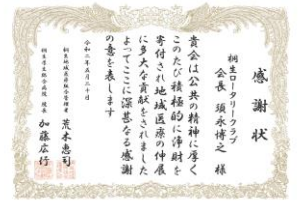 感謝状
桐生ロータリークラブ
会長 須永博之 様
貴会は公共の精神に厚く
このたび積極的に浄財を
寄付され地域医療の伸展
に多大な貢献をされました
よってここに深甚なる感謝
の意を表します
令和二年五月二十日
桐生地域医療組合管理者 荒木恵司
桐生厚生総合病院 院長 加藤広行